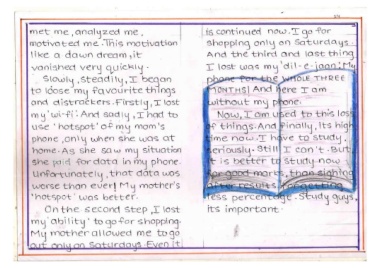 met me, analyzed me,
motivated me. This motivation
like a dawn dream, it
vanished very quickly.
Slowly, steadily, I began
to loose my favourite things
and distracters. Firstly, I lost
my 'wi-fi'. And sadly, I had to
use 'hotspot' of my mom's
phone, only when she was at
home. As she saw my situation
she paid for data in my phone.
Unfortunately, that data was
worse than ever! My mother's
'hotspot' was better.
On the second step, I lost
my 'ability' to go for shopping.
My mother allowed me to go
out only on Saturdays. Even it
is continued now. I go for
shopping only on Saturdays.
And the third and last thing
I lost was my 'dil-e-jaan'; My
phone for the WHOLE THREE
MONTHS! And here I am
without my phone.
Now, I am used to this loss
of things. And finally, Its high
time now. I have to study,
seriously. Still I can't. But
it is better to study now
for good marks, than sighing
after results, forgetting
less percentage. Study guys,
its important.